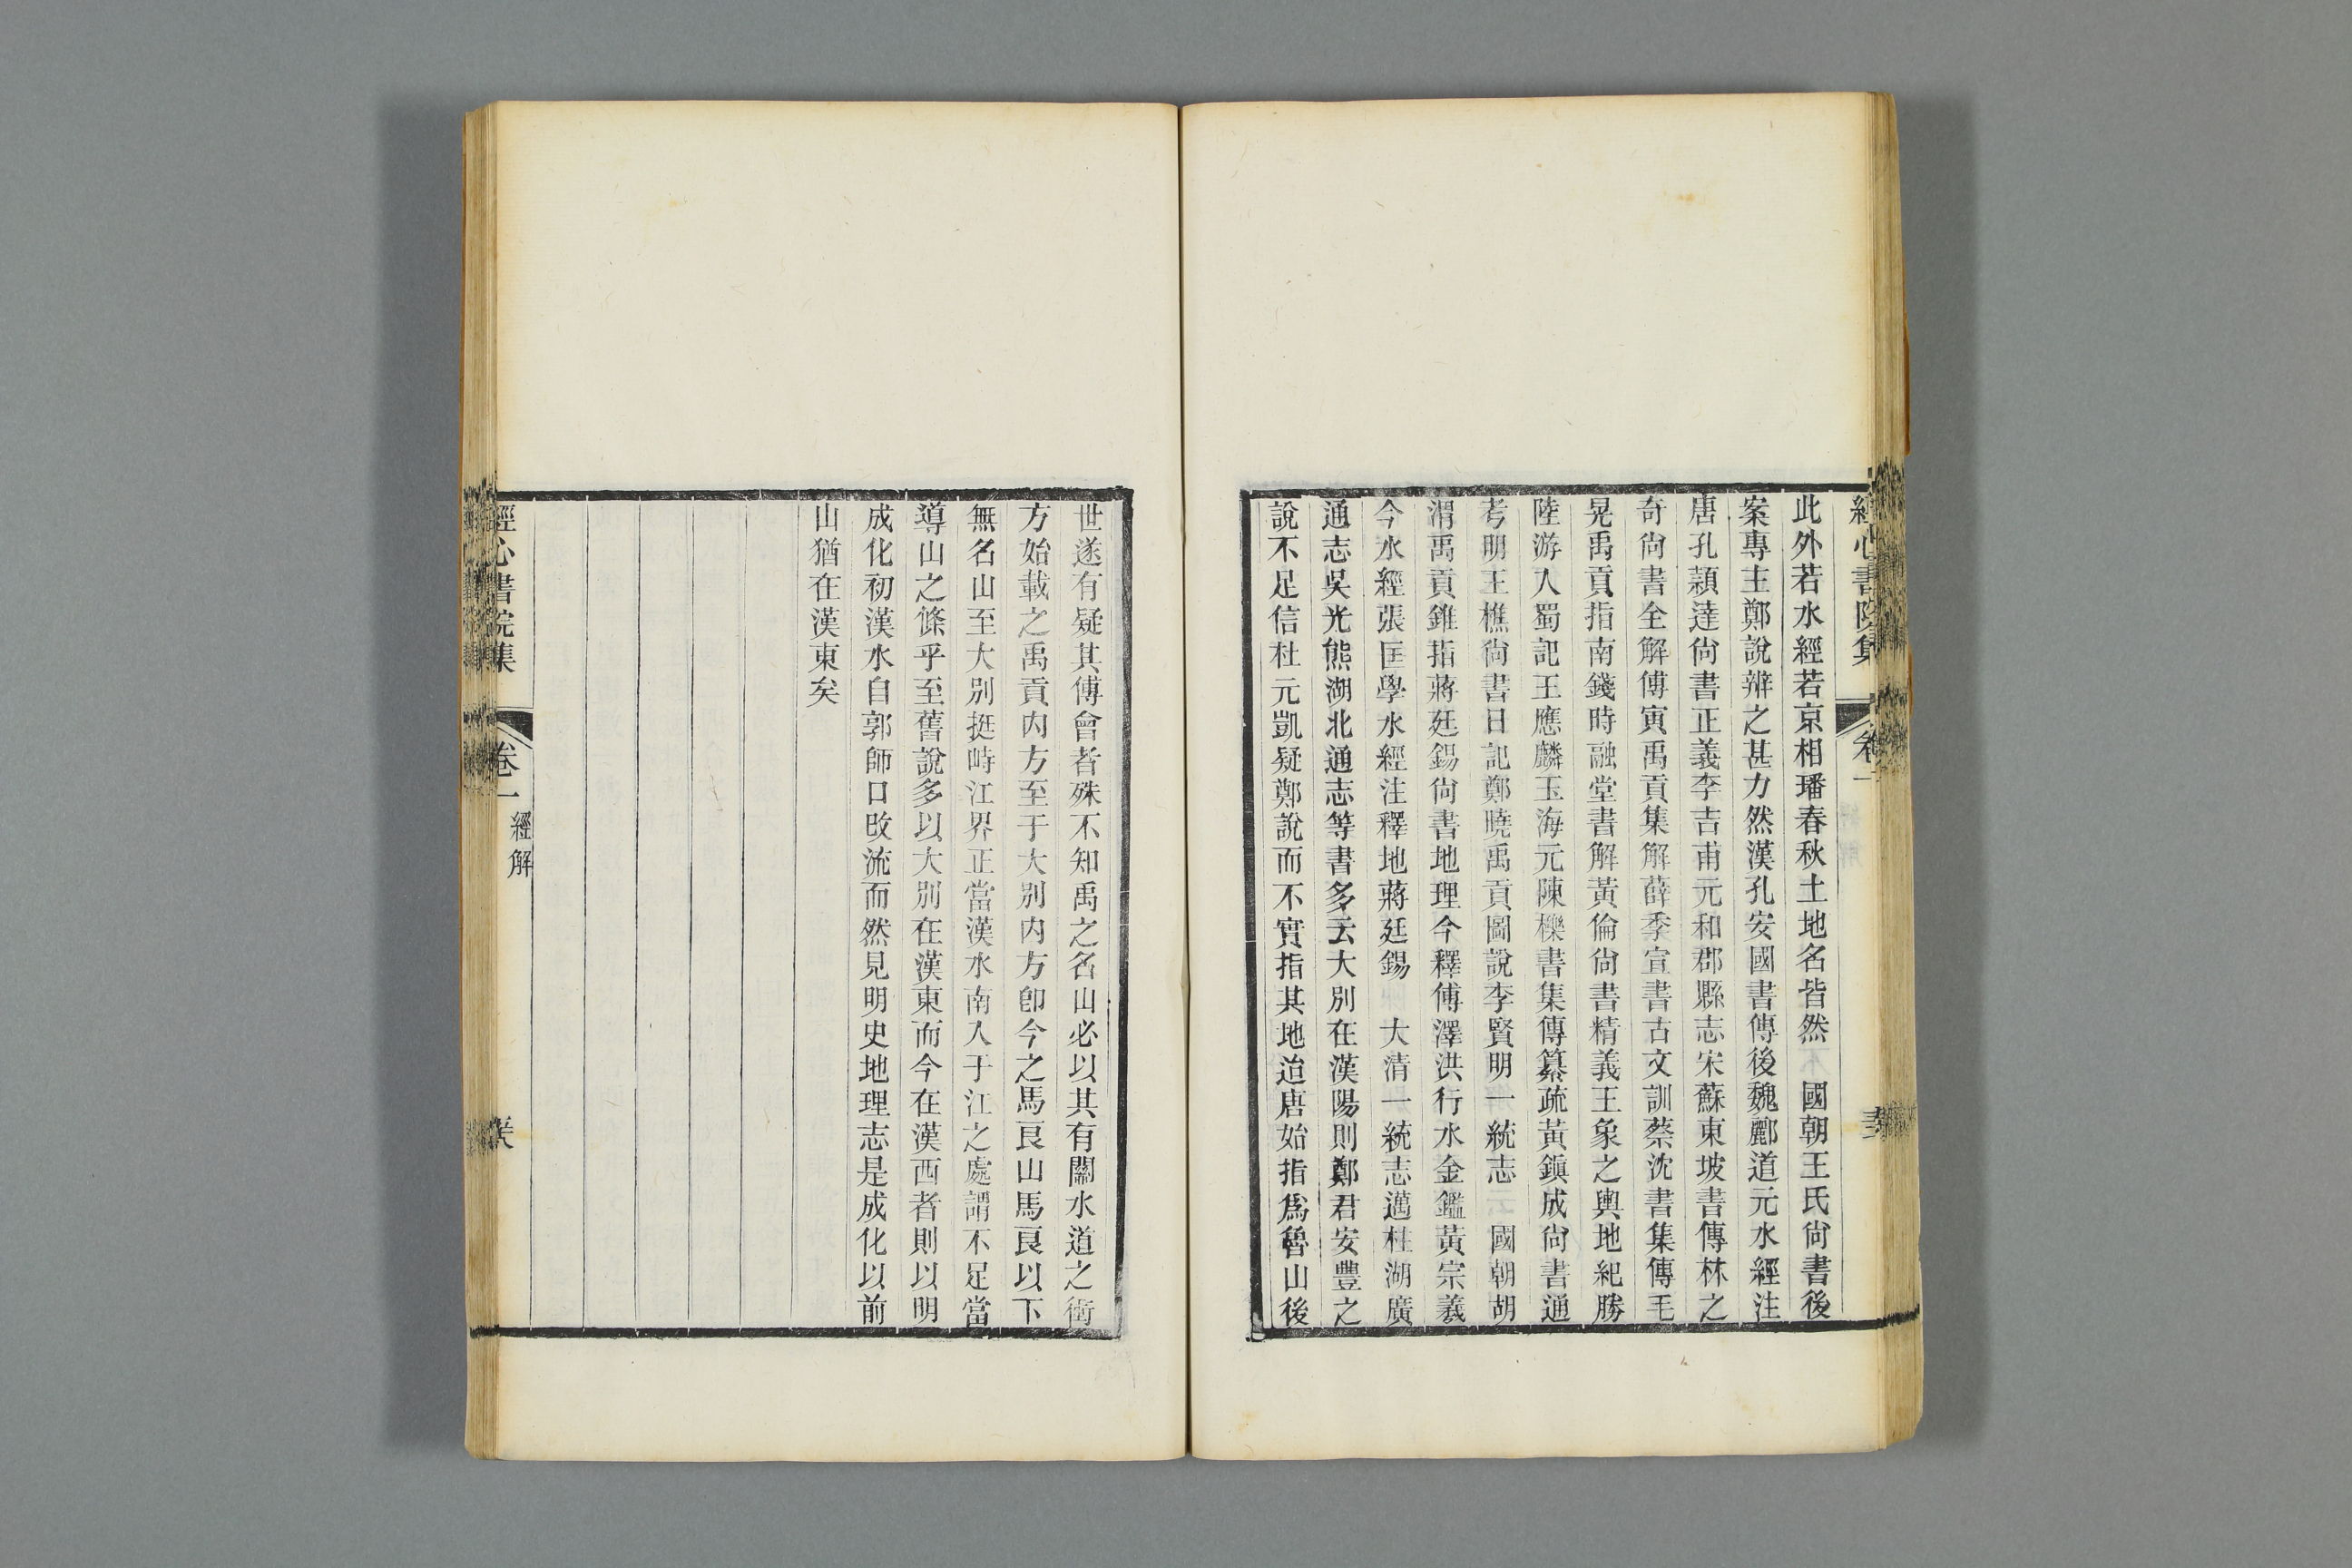 經心書院集
卷一
此外若水經若京相璠春秋土地名皆然　國朝王氏尙書後
案專主鄭說辨之甚力然漢孔安國書傳後魏酈道元水經注
唐孔穎達尙書正義李吉甫元和郡縣志宋蘇東坡書傳林之
奇尙書全解傅寅禹貢集解薛季宣書古文訓蔡沈書集傳毛
晃禹貢指南錢時融堂書解黃倫尙書精義王象之輿地紀勝
陸游入蜀記王應麟玉海元陳櫟書集傳纂疏黃鎭成尙書通
考明王樵尙書日記鄭曉禹貢圖說李賢明一統志　國朝胡
渭禹貢錐指蔣廷錫尙書地理今釋傅澤洪行水金鑑黃宗羲
今水經張匡學水經注釋地蔣廷錫　大清一統志邁柱湖廣
通志吳光熊湖北通志等書多云大別在漢陽則鄭君安豐之
說不足信杜元凱疑鄭說而不實指其地迨唐始指爲魯山後
世遂有疑其傅會者殊不知禹之名山必以其有關水道之衝
方始載之禹貢內方至于大別內方卽今之馬良山馬良以下
無名山至大別挺峙江界正當漢水南入于江之處謂不足當
導山之條乎至舊說多以大別在漢東而今在漢西者則以明
成化初漢水自郭師口改流而然見明史地理志是成化以前
山猶在漢東矣
經心書院集
卷一
經解